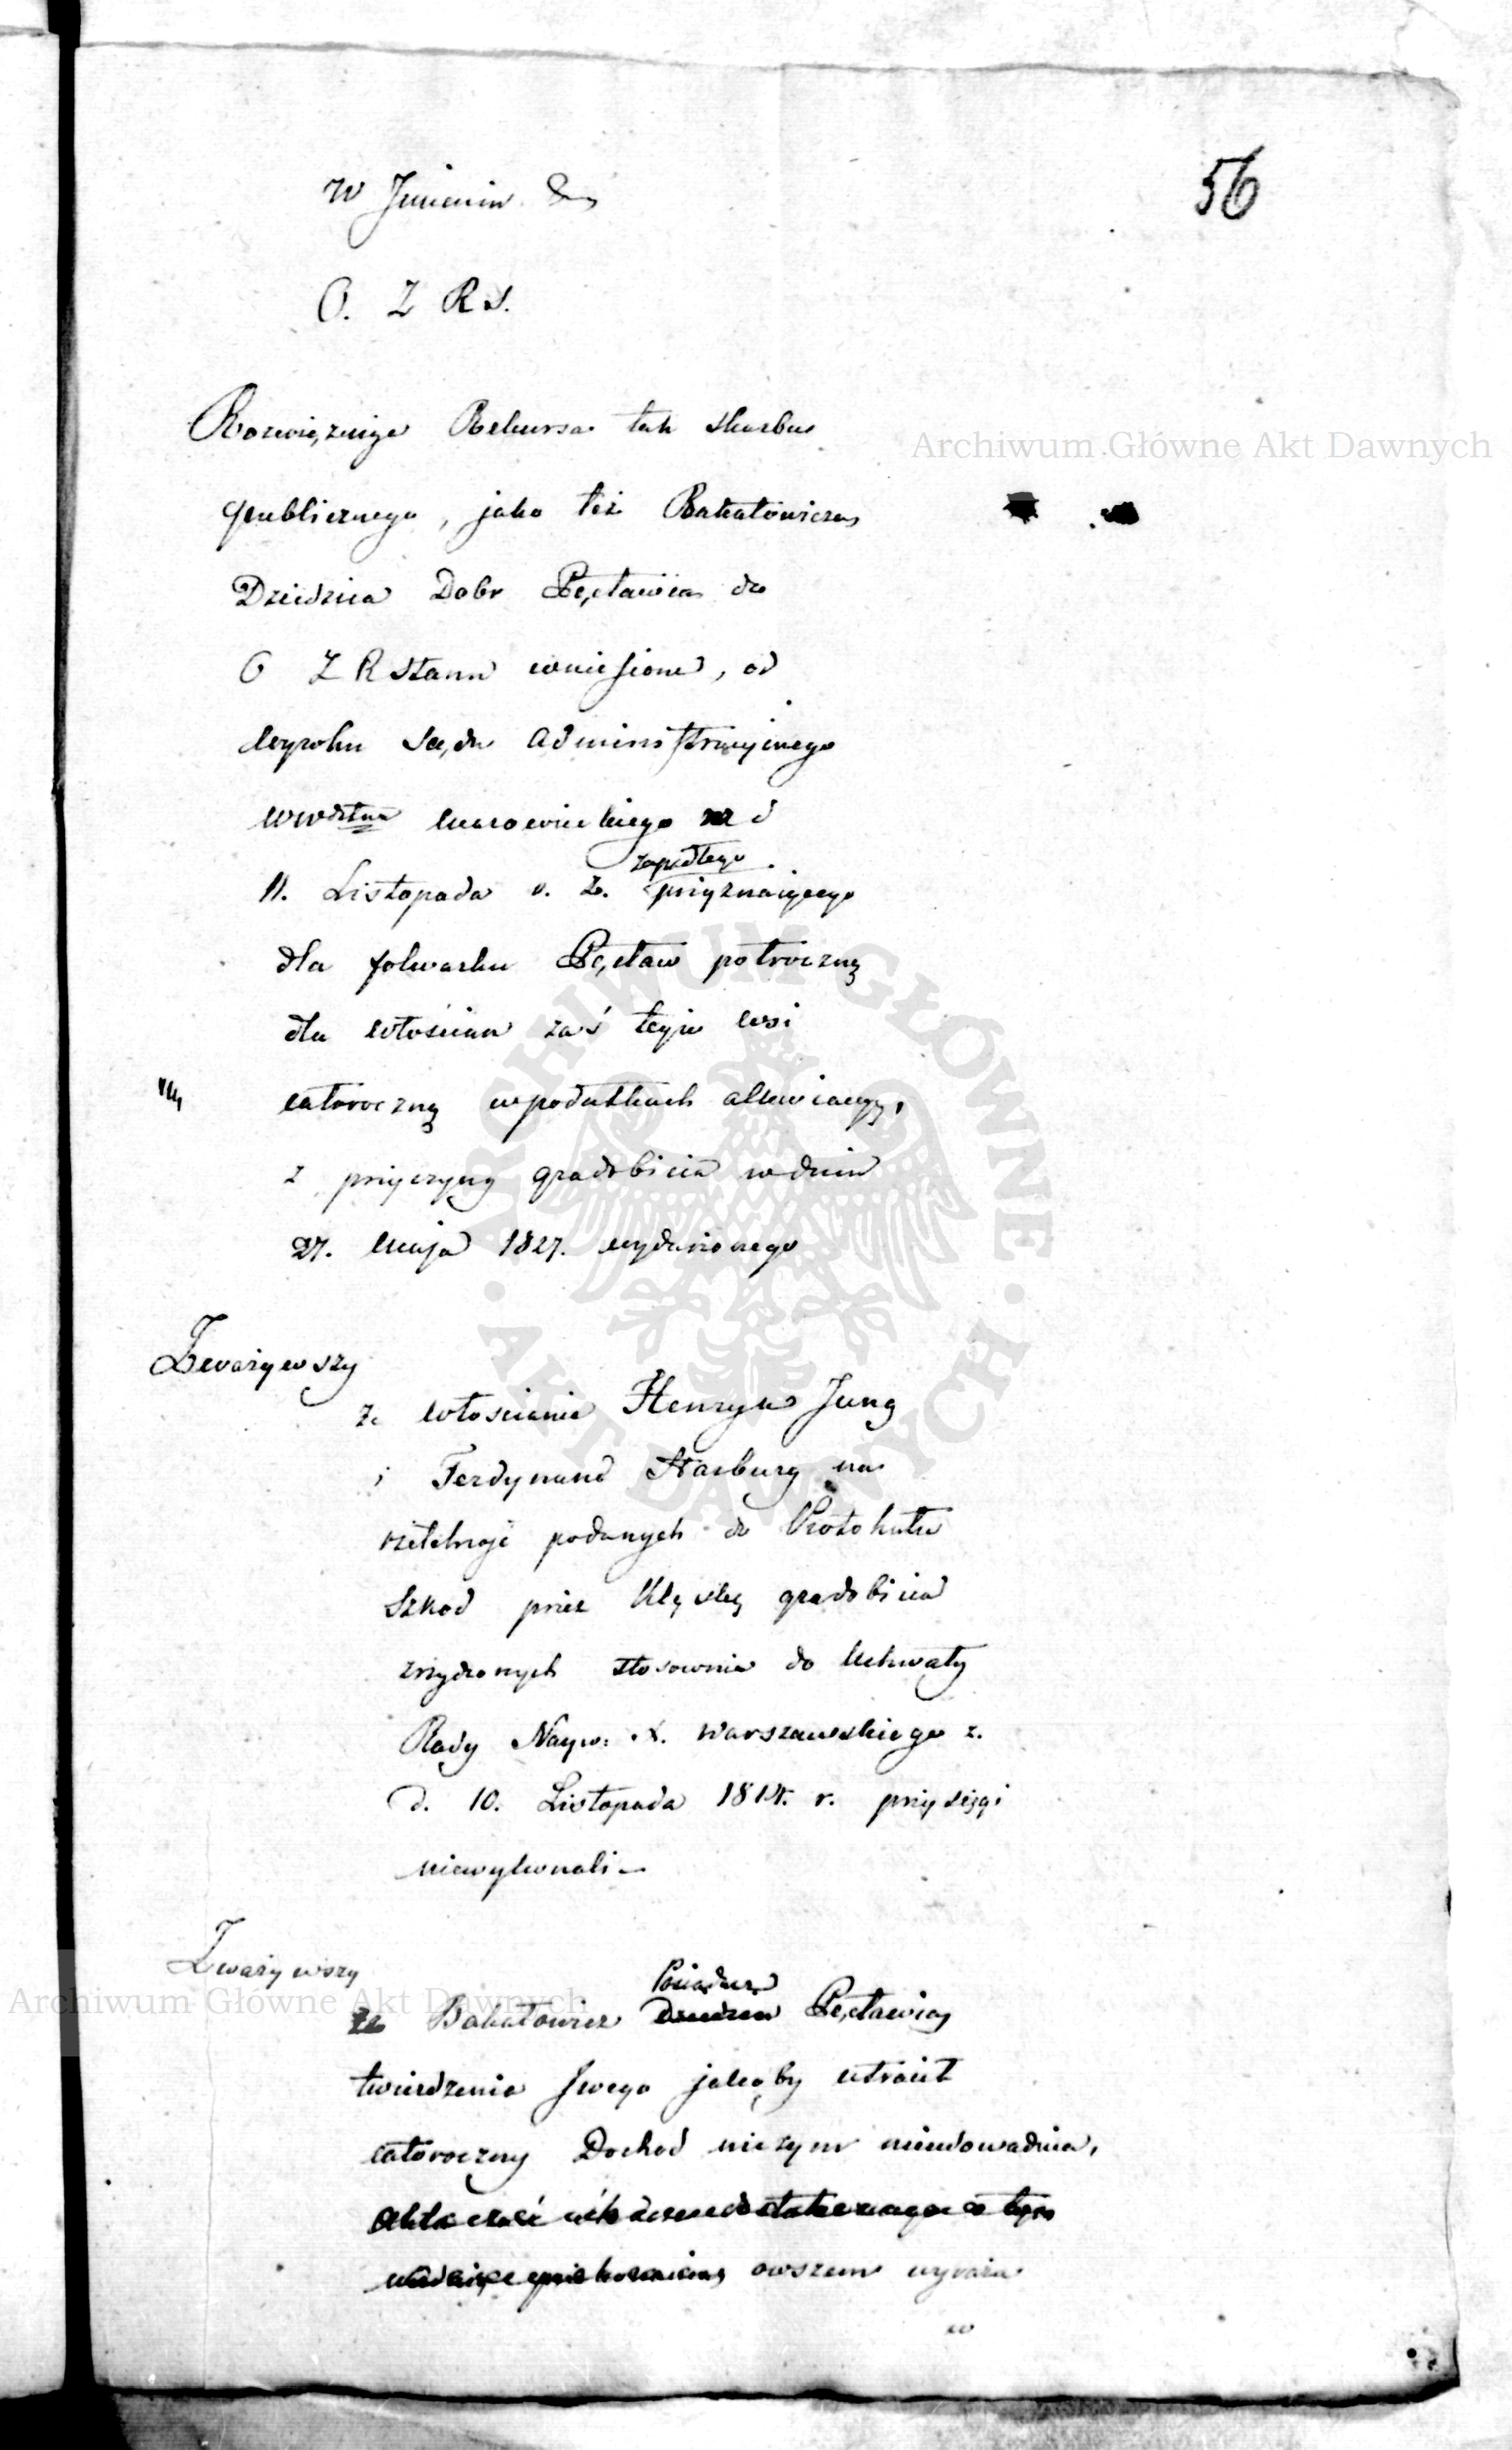 56
W Jmieniu
O. Z R S.
Rozwiązuiąc Rekursa tak skarbu
publicznego, jako też Bakałowicza
Dziedzica Dobr Pęcławia do
O Z R Stanu wniesione, od
wyroku Sądu Administracyjnego
Wwdztwa Mazowieckiego z d
zapadłego
11. Listopada v. z. przyznaiącego
dla folwarku Pęcław połroczną
dla włościan zaś teyże wsi
całoroczną w podatkach allewiacyą,
z przyczyny gradobicia w dniu
27. Maja 1827. wydarzonego
Zważywszy
że włościanie Henryk Jung
i Ferdynand Harburg na
rzetelność podanych do Protokułu
Szkod przez Klęskę gradobicia
zrządzonych stosownie do Uchwały
Rady Nayw: X. Warszawskiego z
d. 10. Listopada 1814. r. przysięgi
niewykonali —
Zważywszy
Posiadacz
że Bakałowicz Dziedzic Pęcławia
twierdzenia swego jakoby utracił
całoroczny Dochod niczym nieudowadnia,
owszem wyraża
w
Archiwum Główne Akt Dawnych
Archiwum Główne Akt Dawnych
ARCHIWUM GŁÓWNE
AKT DAWNYCH